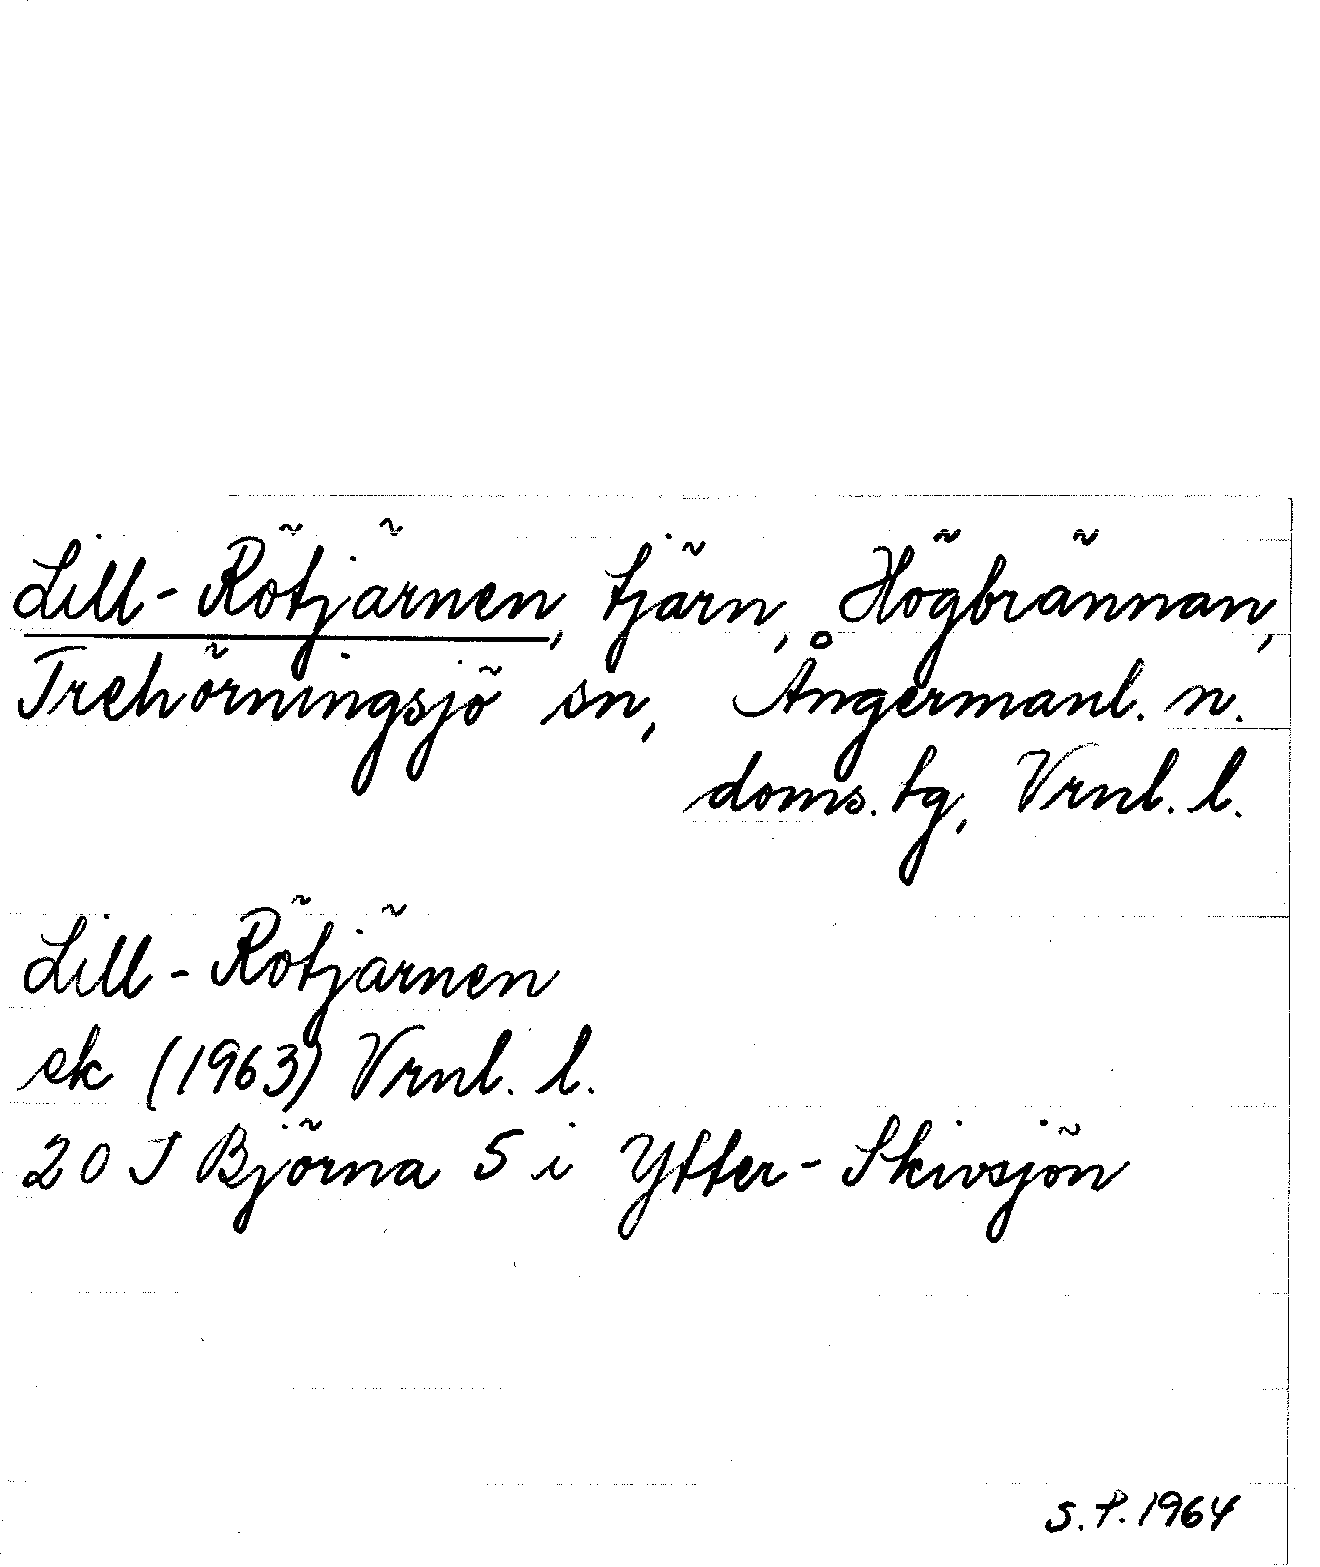 Lill-Rötjärnen, tjärn, Högbrännan,
Trehörningsjö sn, Ångermanl. n.
doms. tg, Vrnl. l.
Lill-Rötjärnen
ek (1963) Vrnl. l.
20 J Björna 5 i Ytter-Skivsjön
S.P. 1964